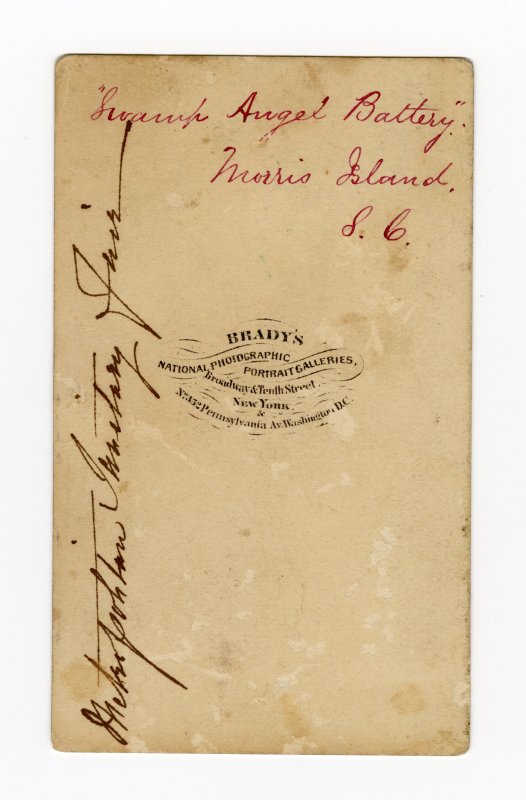 "Swamp Angel Battery".
Morris Island.
S. C.
Metropolitan Sanitary Fair
BRADY'S
NATIONAL PHOTOGRAPHIC
PORTRAIT GALLERIES,
Broadway & Tenth Street,
NEW YORK.
&
No. 352 Pennsylvania Av. Washington, D.C.